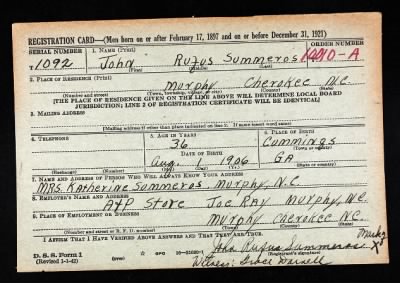 REGISTRATION CARD—(Men born on or after February 17, 1897 and on or before December 31, 1921)
SERIAL NUMBER 1. NAME (Print) ORDER NUMBER
T 1092 John Rufus Summeros 10-A
(First) (Middle) (Last)
2. PLACE OF RESIDENCE (Print)
Murphy Cherokee N.C.
(Number and street) (Town, township, village, or city) (County) (State)
[THE PLACE OF RESIDENCE GIVEN ON THE LINE ABOVE WILL DETERMINE LOCAL BOARD
JURISDICTION; LINE 2 OF REGISTRATION CERTIFICATE WILL BE IDENTICAL]
3. MAILING ADDRESS
[Mailing address if other than place indicated on line 2. If same insert word same]
4. TELEPHONE 5. AGE IN YEARS 6. PLACE OF BIRTH
36 Cummings
DATE OF BIRTH (Town or county)
Aug. 1 1906 GA
(Exchange) (Number) (Mo.) (Day) (Yr.) (State or country)
7. NAME AND ADDRESS OF PERSON WHO WILL ALWAYS KNOW YOUR ADDRESS
MRS. Katherine Summeros Murphy, N.C.
8. EMPLOYER'S NAME AND ADDRESS
A+P Store Joe Ray Murphy, N.C.
9. PLACE OF EMPLOYMENT OR BUSINESS
Murphy Cherokee N.C.
(Number and street or R. F. D. number) (Town) (County) (State)
I AFFIRM THAT I HAVE VERIFIED ABOVE ANSWERS AND THAT THEY ARE TRUE.
John Rufus Summeros X
D. S. S. Form 1 (Registrant's signature)
(Revised 1-1-42) GPO Witness: Grace